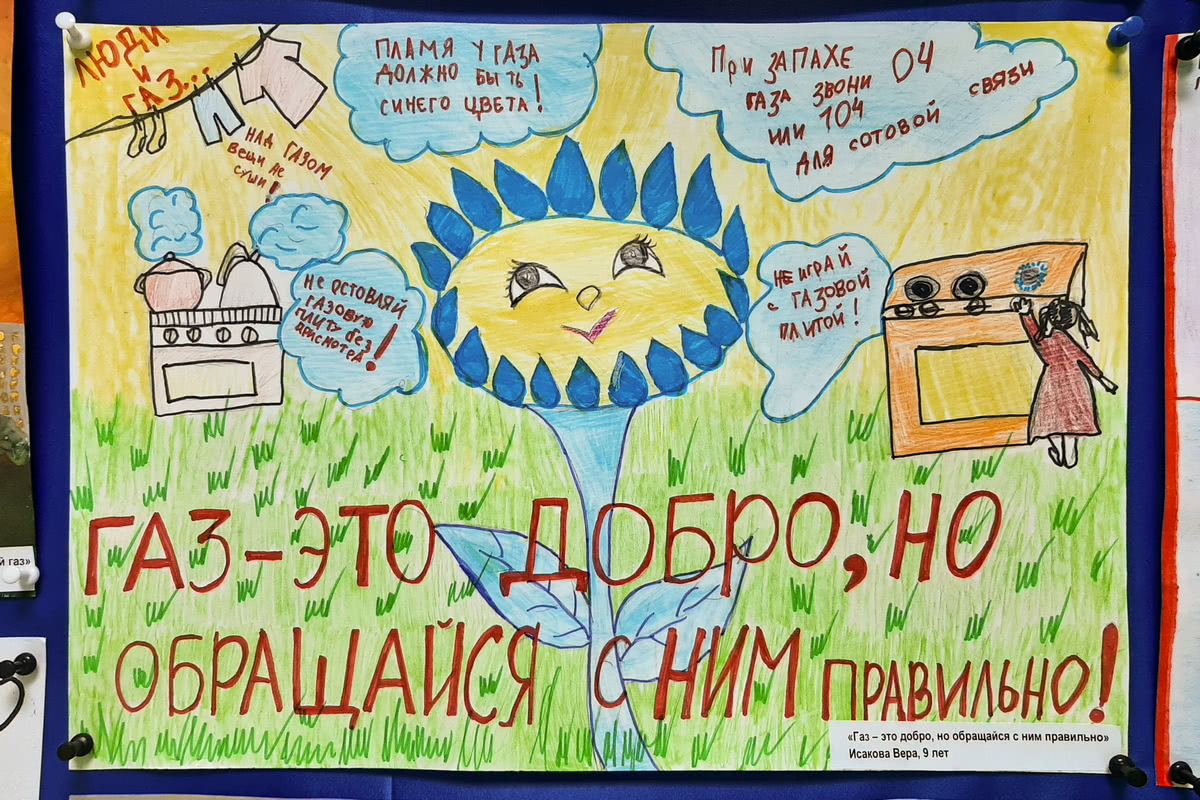 ЛЮДИ
И
ГАЗ...
НАД ГАЗОМ
ВЕЩИ НЕ
СУШИ!
ПЛАМЯ У ГАЗА
ДОЛЖНО БЫТЬ
СИНЕГО ЦВЕТА!
При ЗАПАХЕ
ГАЗА ЗВОНИ 04
ИЛИ 104
ДЛЯ СОТОВОЙ СВЯЗИ
НЕ ОСТОВЛЯЙ
ГАЗОВУЮ
ПЛИТУ без
НЕ ИГРАЙ
С ГАЗОВОЙ
ПЛИТОЙ!
ГАЗ - ЭТО ДОБРО, НО
ОБРАЩАЙСЯ С НИМ ПРАВИЛЬНО!
«Газ – это добро, но обращайся с ним правильно»
Исакова Вера, 9 лет
й газ»